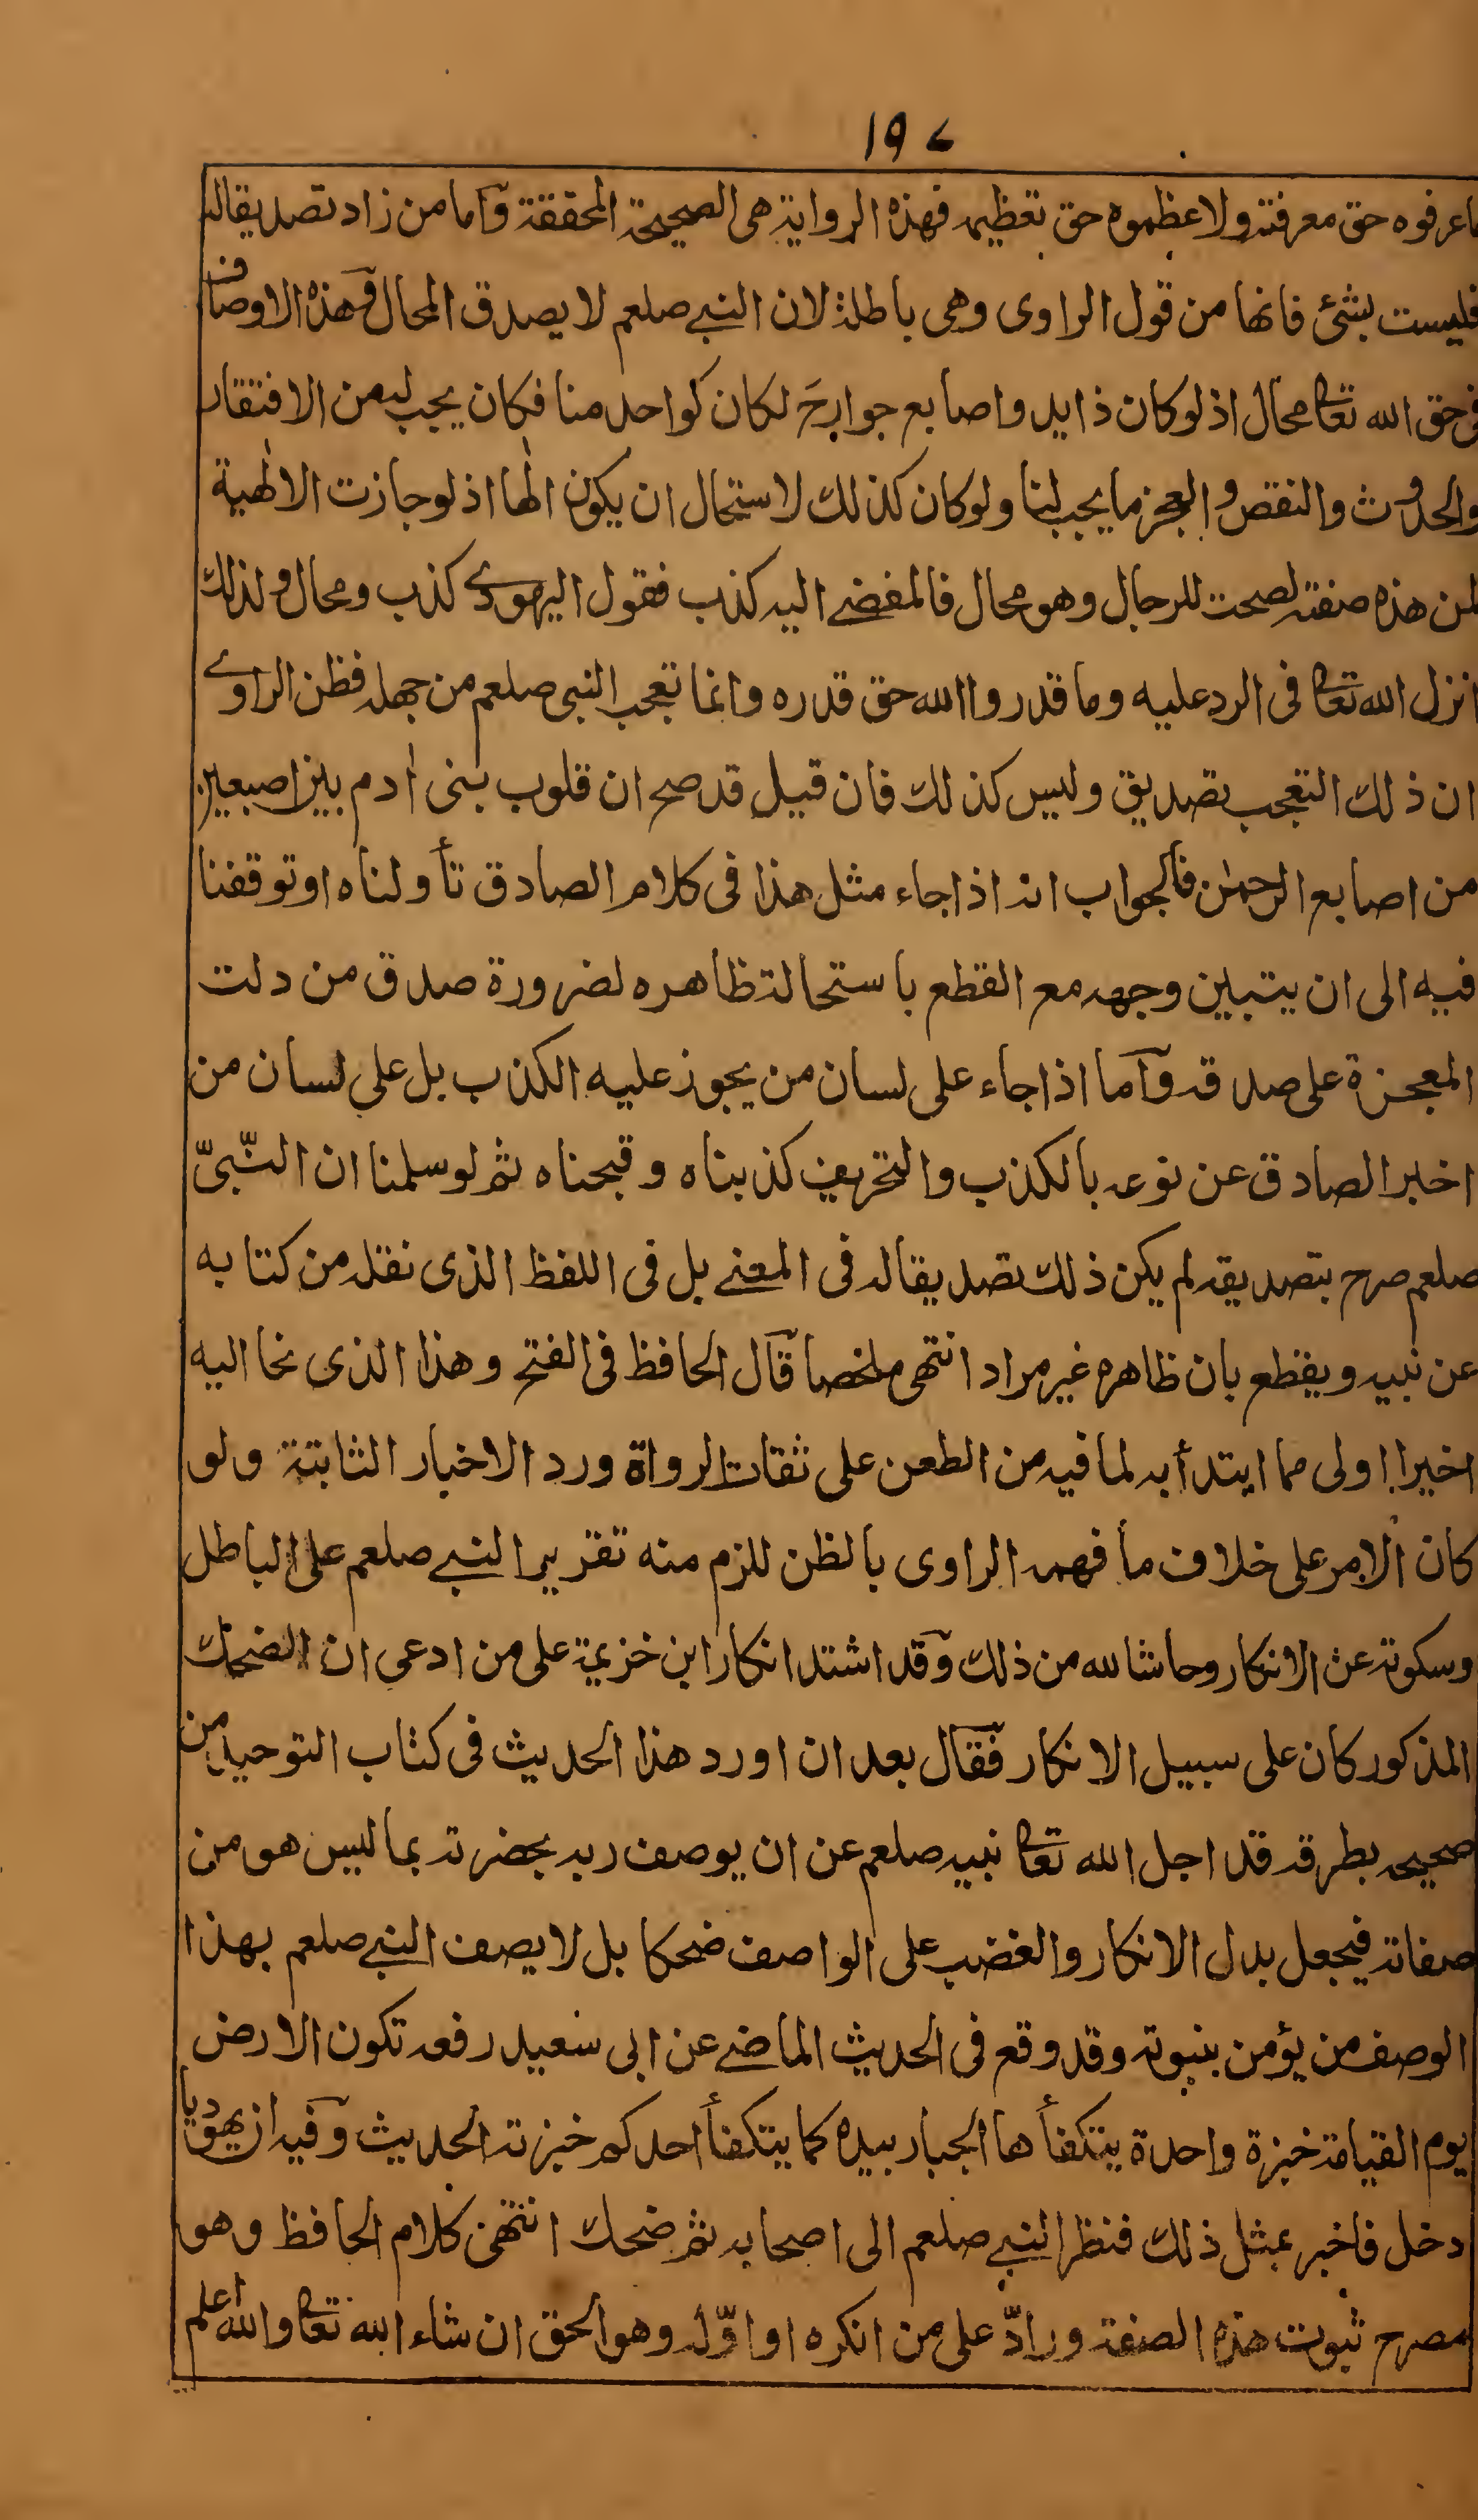 ١٩٧
ما عرفوه حق معرفته ولا عظموه حق تعظيمه فهذه الرواية هى الصحيحة المحققة وآما من زاد تصديقا له
فليست بشئ فانها من قول الراوى وهى باطلة لان النبي صلعم لا يصدق المحال وهذه الاوصاف
فى حق الله تعا محال اذ لو كان ذا يد واصابع جوارح لكان كواحد منا فكان يجب له من الافتقار
والحدوث والنقص والعجز ما يجب لنا ولو كان كذلك لاستحال ان يكون الٰها اذ لو جازت الالٰهية
لمن هذه صفته لصحت للرجال وهو محال فالمفضے اليه كذب فقول اليهودے كذب ومحال ولذلك
انزل الله تعا فى الرد عليه وما قدروا الله حق قدره وانما تعجب النبى صلعم من جهله فظن الراوے
ان ذلك التعجب تصديق وليس كذلك فان قيل قد صح ان قلوب بنى اٰدم بين اصبعين
من اصابع الرحمٰن فالجواب انه اذا جاء مثل هذا فى كلام الصادق تأولناه او توقفنا
فيه الى ان يتبين وجهه مع القطع باستحالة ظاهره لضرورة صدق من دلت
المعجزة على صدقه وآما اذا جاء على لسان من يجوز عليه الكذب بل على لسان من
اخبر الصادق عن نوعه بالكذب والتحريف كذبناه وقبحناه ثم لو سلمنا ان النّبىّ
صلعم صرح بتصديقه لم يكن ذلك تصديقا له فى المعنے بل فى اللفظ الذى نقله من كتابه
عن نبيه ويقطع بان ظاهره غير مراد انتهى ملخصا قآل الحافظ فى الفتح وهذا الذى نحا اليه
اخيرا اولى مما ابتدأ به لما فيه من الطعن على ثقات الرواة ورد الاخبار الثابتة ولو
كان الامر على خلاف ما فهمه الراوى بالظن للزم منه تقرير النبے صلعم على الباطل
وسكوته عن الانكار وحاشا لله من ذلك وقد اشتد انكار ابن خزيمة على من ادعى ان الضحك
المذكور كان على سبيل الانكار فقآل بعد ان اورد هذا الحديث فى كتاب التوحيد من
صحيحه بطرقه قد اجل الله تعا نبيه صلعم عن ان يوصف ربه بحضرته بما ليس هو من
صفاته فيجعل بدل الانكار والغضب على الواصف ضحكا بل لا يصف النبے صلعم بهذا
الوصف من يؤمن بنبوته وقد وقع فى الحديث الماضے عن ابى سعيد رفعه تكون الارض
يوم القيامة خبزة واحدة يتكفأها الجبار بيده كما يتكفأ احدكم خبزته الحديث وفيه ان يهوديا
دخل فاخبر بمثل ذلك فنظر النبے صلعم الى اصحابه ثم ضحك انتهى كلام الحافظ وهو
مصرح ثبوت هذه الصفة ورادّ على من انكره او اوّله وهو الحق ان شاء الله تعا والله اعلم